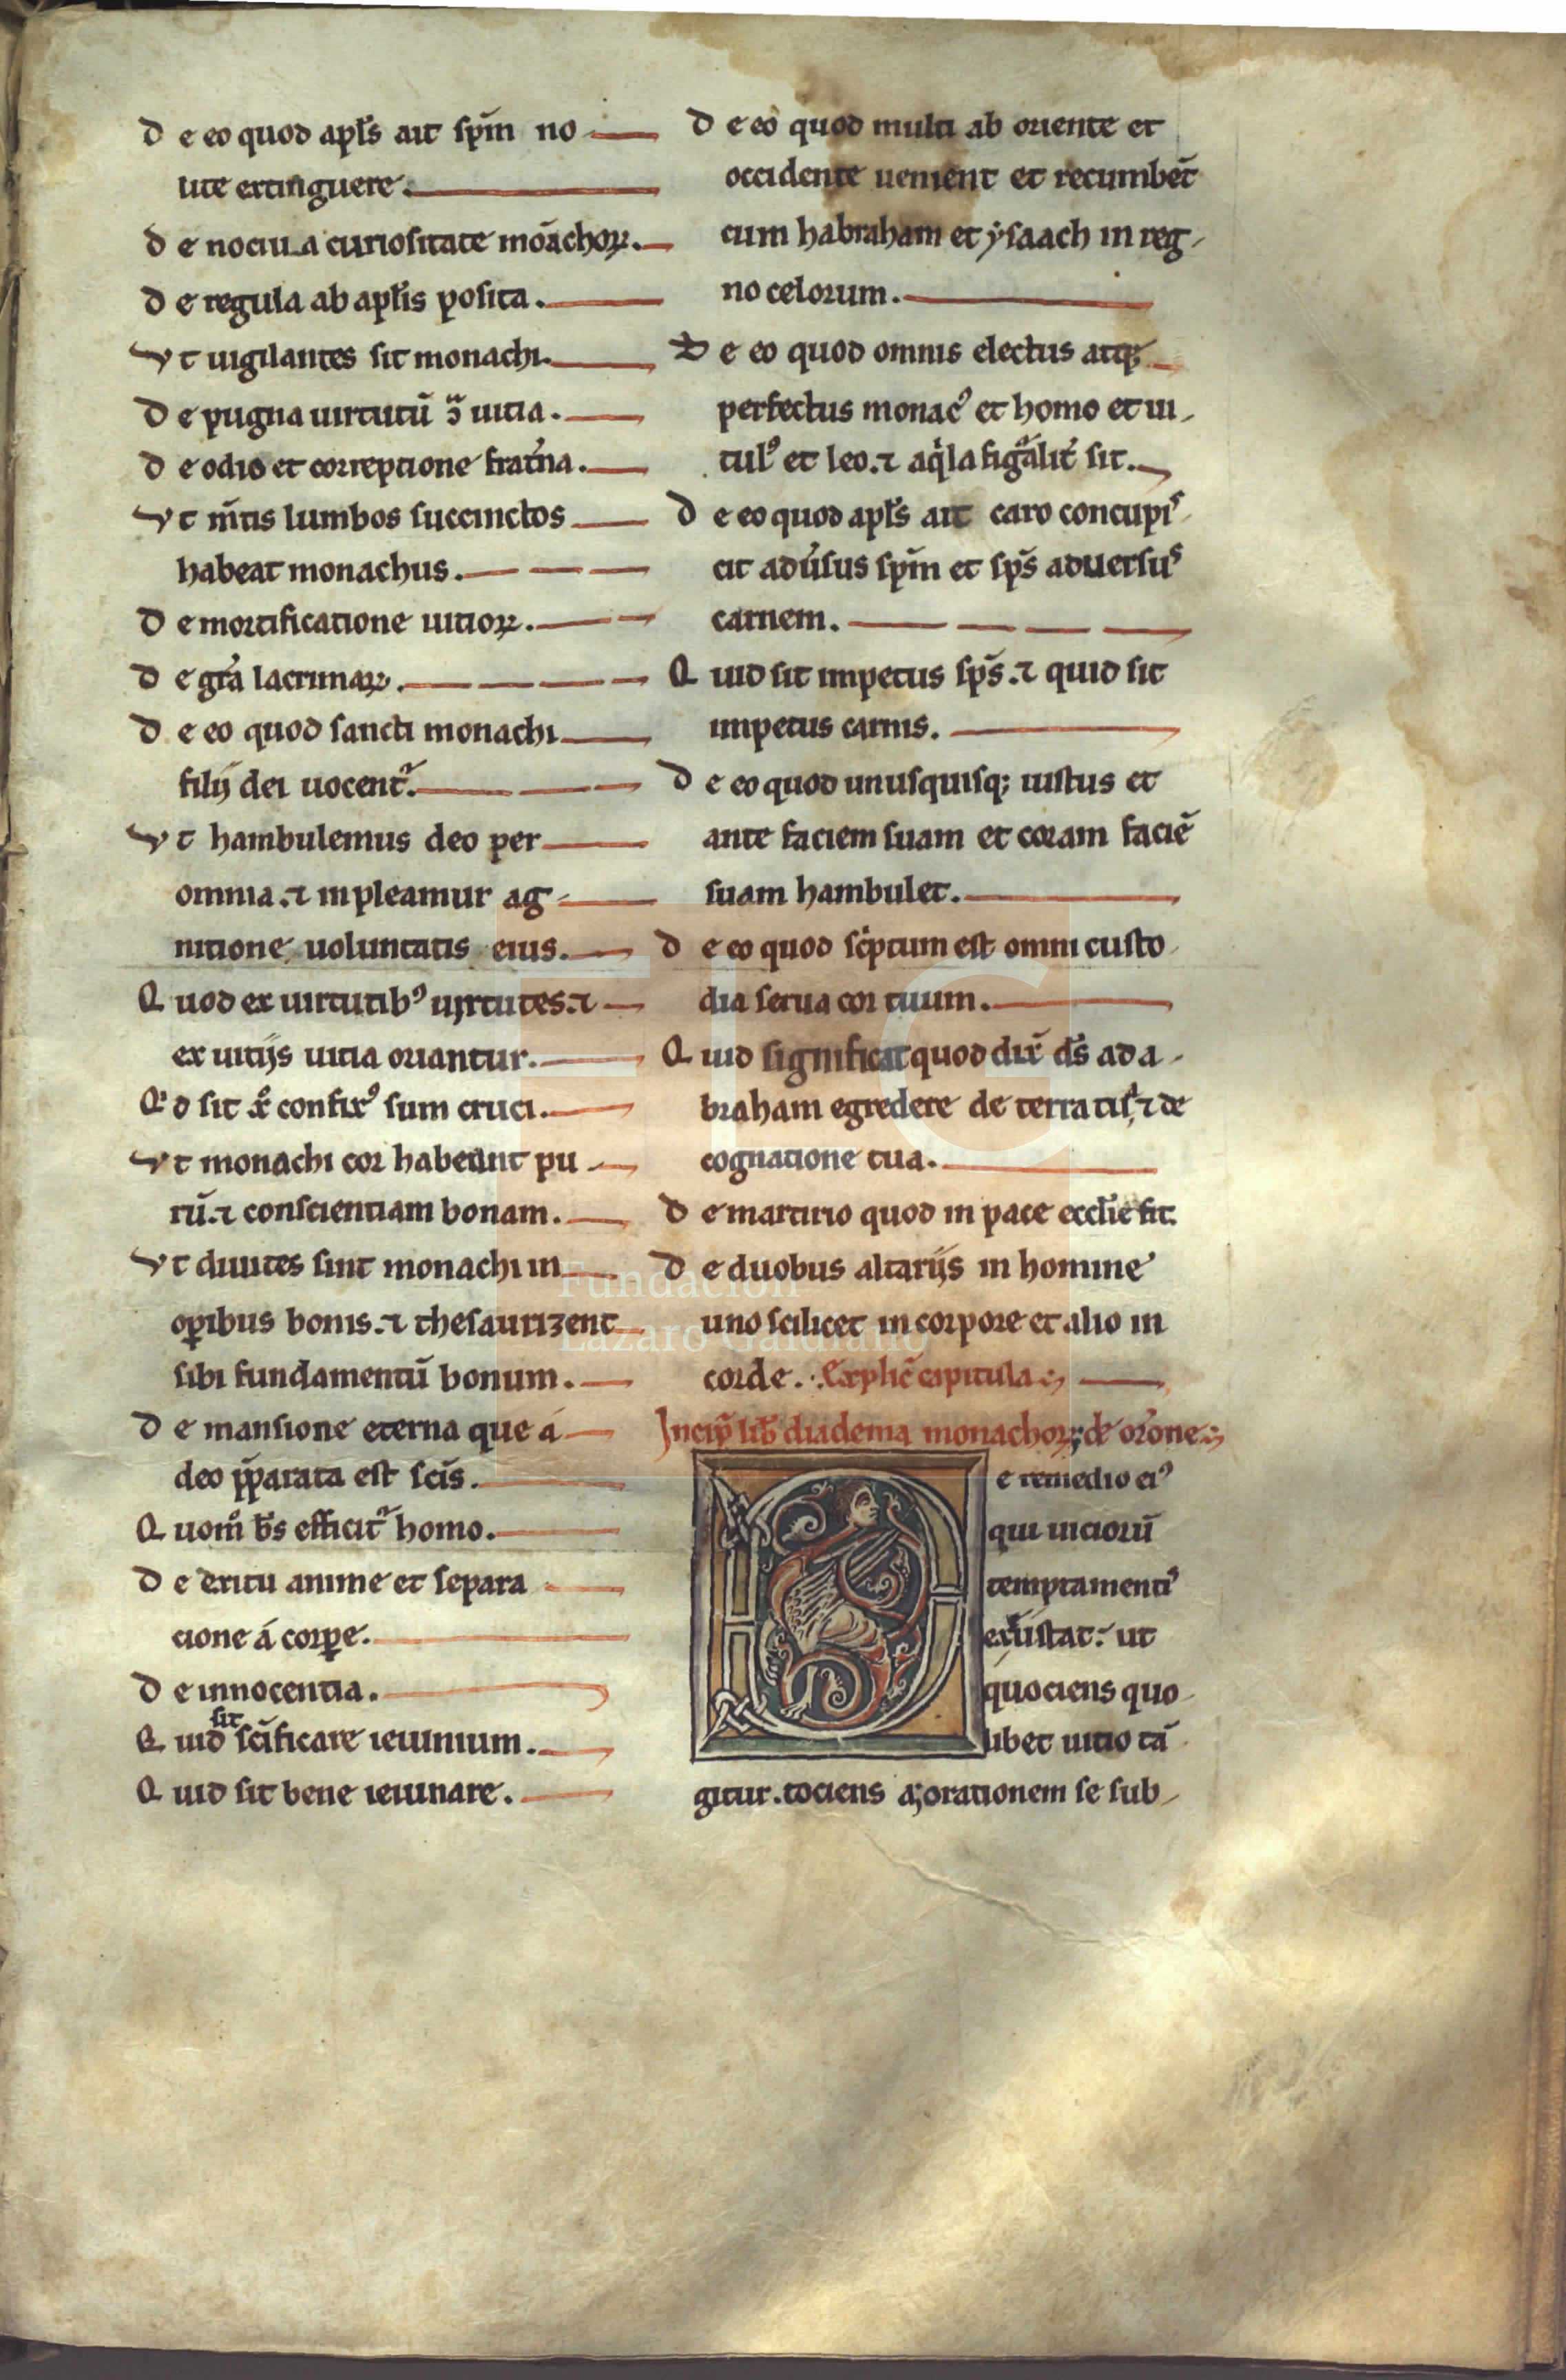 De eo quod apl̃s ait sp̃m no
lite extinguere.
De nociua curiositate mon̄achoꝝ.
De regula ab apl̃is posita.
Vt uigilantes sit monachi.
De pugna uirtutū ↄ̃ uitia.
De odio et correptione frat̾na.
Vt m̃tis lumbos succinctos
habeat monachus.
De mortificatione uitioꝝ.
De gr̃a lacrimaꝝ.
De eo quod sancti monachi
filij dei uocent᷑.
Vt hambulemus deo per
omnia. ⁊ inpleamur ag
nitione uoluntatis eius.
Quod ex uirtutibꝰ uirtutes. ⁊
ex uitijs uitia oriantur.
Qͥd sit xp̃o confixꝰ sum cruci.
Vt monachi cor habeant pu
rū. ⁊ conscientiam bonam.
Vt diuites sint monachi in
oꝑibus bonis. ⁊ thesaurizent
sibi fundamentū bonum.
De mansione eterna que á
deo p̃parata est sc̃is.
Quom̊ d̃s efficit᷑ homo.
De exitu anime et separa
cione á corꝑe.
De innocentia.
sit
Quid sc̃ificare ieiunium.
Quid sit bene ieiunare.
De eo quod multi ab oriente et
occidente uenient et recumbēt
cum habraham et ẏsaach in reg
no celorum.
De eo quod omnis electus atqꝫ
perfectus monacꝰ et homo et ui
tulꝰ et leo. ⁊ aqͥla figͣalit̾ sit.
De eo quod apl̃s ait caro concupiſ
cit adu̾sus sp̃m et sp̃s aduersuſ
carnem.
Quid sit impetus sp̃s. ⁊ quid sit
impetus carnis.
De eo quod unusquisqꝫ iustus et
ante faciem suam et coram faciē
suam hambulet.
De eo quod scͥptum est omni custo
dia serua cor tuum.
Quid significat quod dix̃ d̃s ad a
braham egredere de terra tuᷓ. ⁊ de
cognatione tua.
De martirio quod in pace eccl̃ie fit.
De duobus altarijs in homine
uno scilicet in corpore et alio in
corde. Explic̃ capitula
Incip̃ lib̃ diadema monachoꝝ; de or̃one
De remedio eiꝰ
qui uiciorū
temptamentiſ
exustat: ut
quociens quo
libet uitio tā
gitur. tociens aꝫ orationem se sub
Fundación
Lázaro Galdiano
FLG